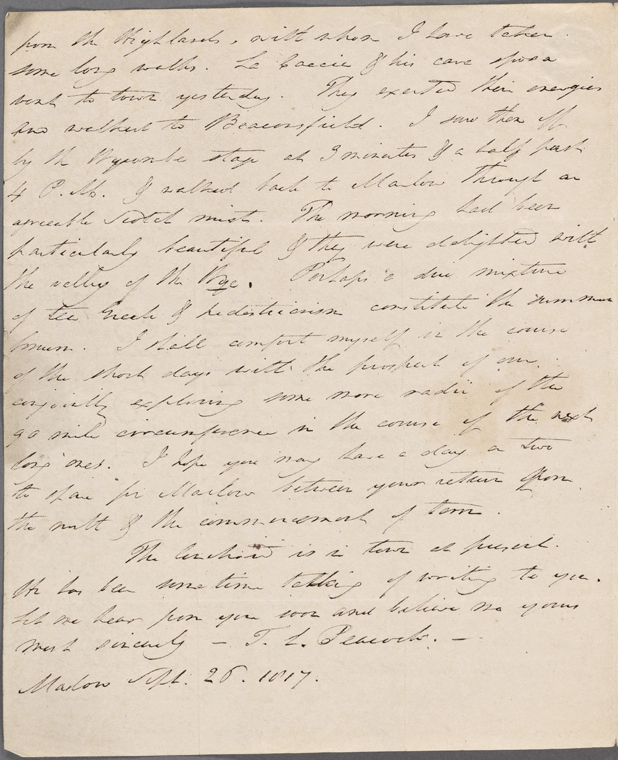 from the Highlands, with whom I have taken
some long walks. Le Caccie & his cara sposa
went to town yesterday. They exerted their energies
and walked to Beaconsfield. I saw them off
by the Wycombe stage at 3 minutes & a half past
4 P.M. & walked back to Marlow through an
agreeable Scotch mist. The morning had been
particularly beautiful & they were delighted with
the valley of the Wye. Perhaps a due mixture
of tea Greek & pedestrianism constitute the summum
bonum. I shall comfort myself in the course
of the short days with the prospect of our
conjointly exploring some more radii of the
90 mile circumference in the course of the next
long ones. I hope you may have a day or two
to spare for Marlow between your return from
the north & the commencement of term.
The is in town at present.
He has been sometime talking of writing to you.
Let me hear from you soon and believe me yours
most sincerely — T. L. Peacock. —
Marlow Sept. 26. 1817.